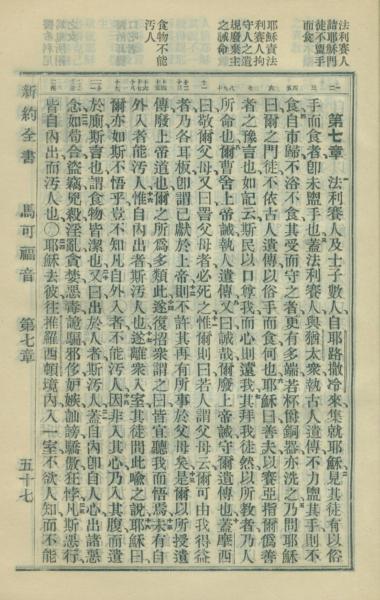 法利賽人
諸耶穌門
徒不盥手
而食
耶穌責法
利賽人拘
守人之遺
規廢棄主
之誡命
食物不能
污人
第七章 法利賽人及士子數人自耶路撒冷來集就耶穌見其徒有以俗
手而食者卽未盥手也蓋法利賽人與猶太衆執古人遺傳不力盥其手則不
食自市歸不浴不食其受而守之者更有多端若杯銅器亦洗之乃問耶穌
曰爾之門徒不依古人遺傳以俗手而食何也耶穌曰善夫以賽亞指爾僞善
者之豫言也如記云斯民以口尊我而心則遠我其拜我徒然以所教者乃人
所命也爾曹舍上帝誡執人遺傳又曰誠哉爾廢上帝誡守爾遺傳也蓋摩西
曰敬爾父母又曰詈父母者必死之惟爾則曰若人謂父母云爾可由我得益
者乃各耳板卽謂已獻於上帝則不許其再有所事於父母矣是爾以所授遺
傳廢上帝道也爾之所爲多類此遂復招衆謂之曰皆宜聽我而悟焉未有自
外入者能污人惟自內出者斯污人也遂離衆入室其徒問此喻之說耶穌曰
爾亦如斯不悟乎豈不知凡自外入者不能污人因非入其心乃入其腹而遺
於廁斯言也謂食物皆潔也又曰出於人者斯污人蓋自內卽自人心出諸惡
念如苟合盜竊兇殺淫亂貪婪惡毒詭騙邪侈妬嫉訕謗驕傲狂悖凡斯惡行
皆自內出而污人也〇耶穌去彼往推羅西頓境內入一室不欲人知而不能
新約全書 馬可福音 第七章 五十七